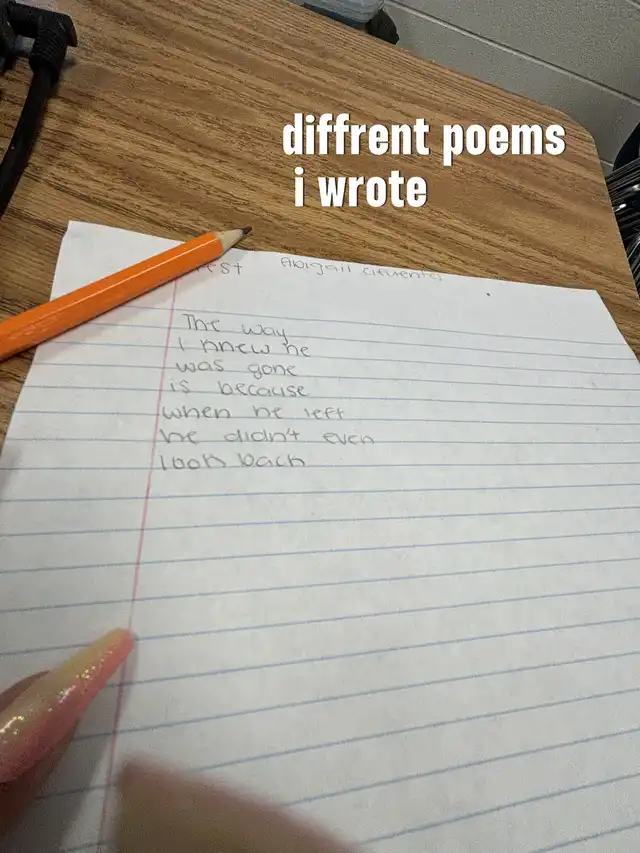 diffrent poems
i wrote
Abigail
The way
I knew he
was gone
is because
when he left
he didn't even
look back